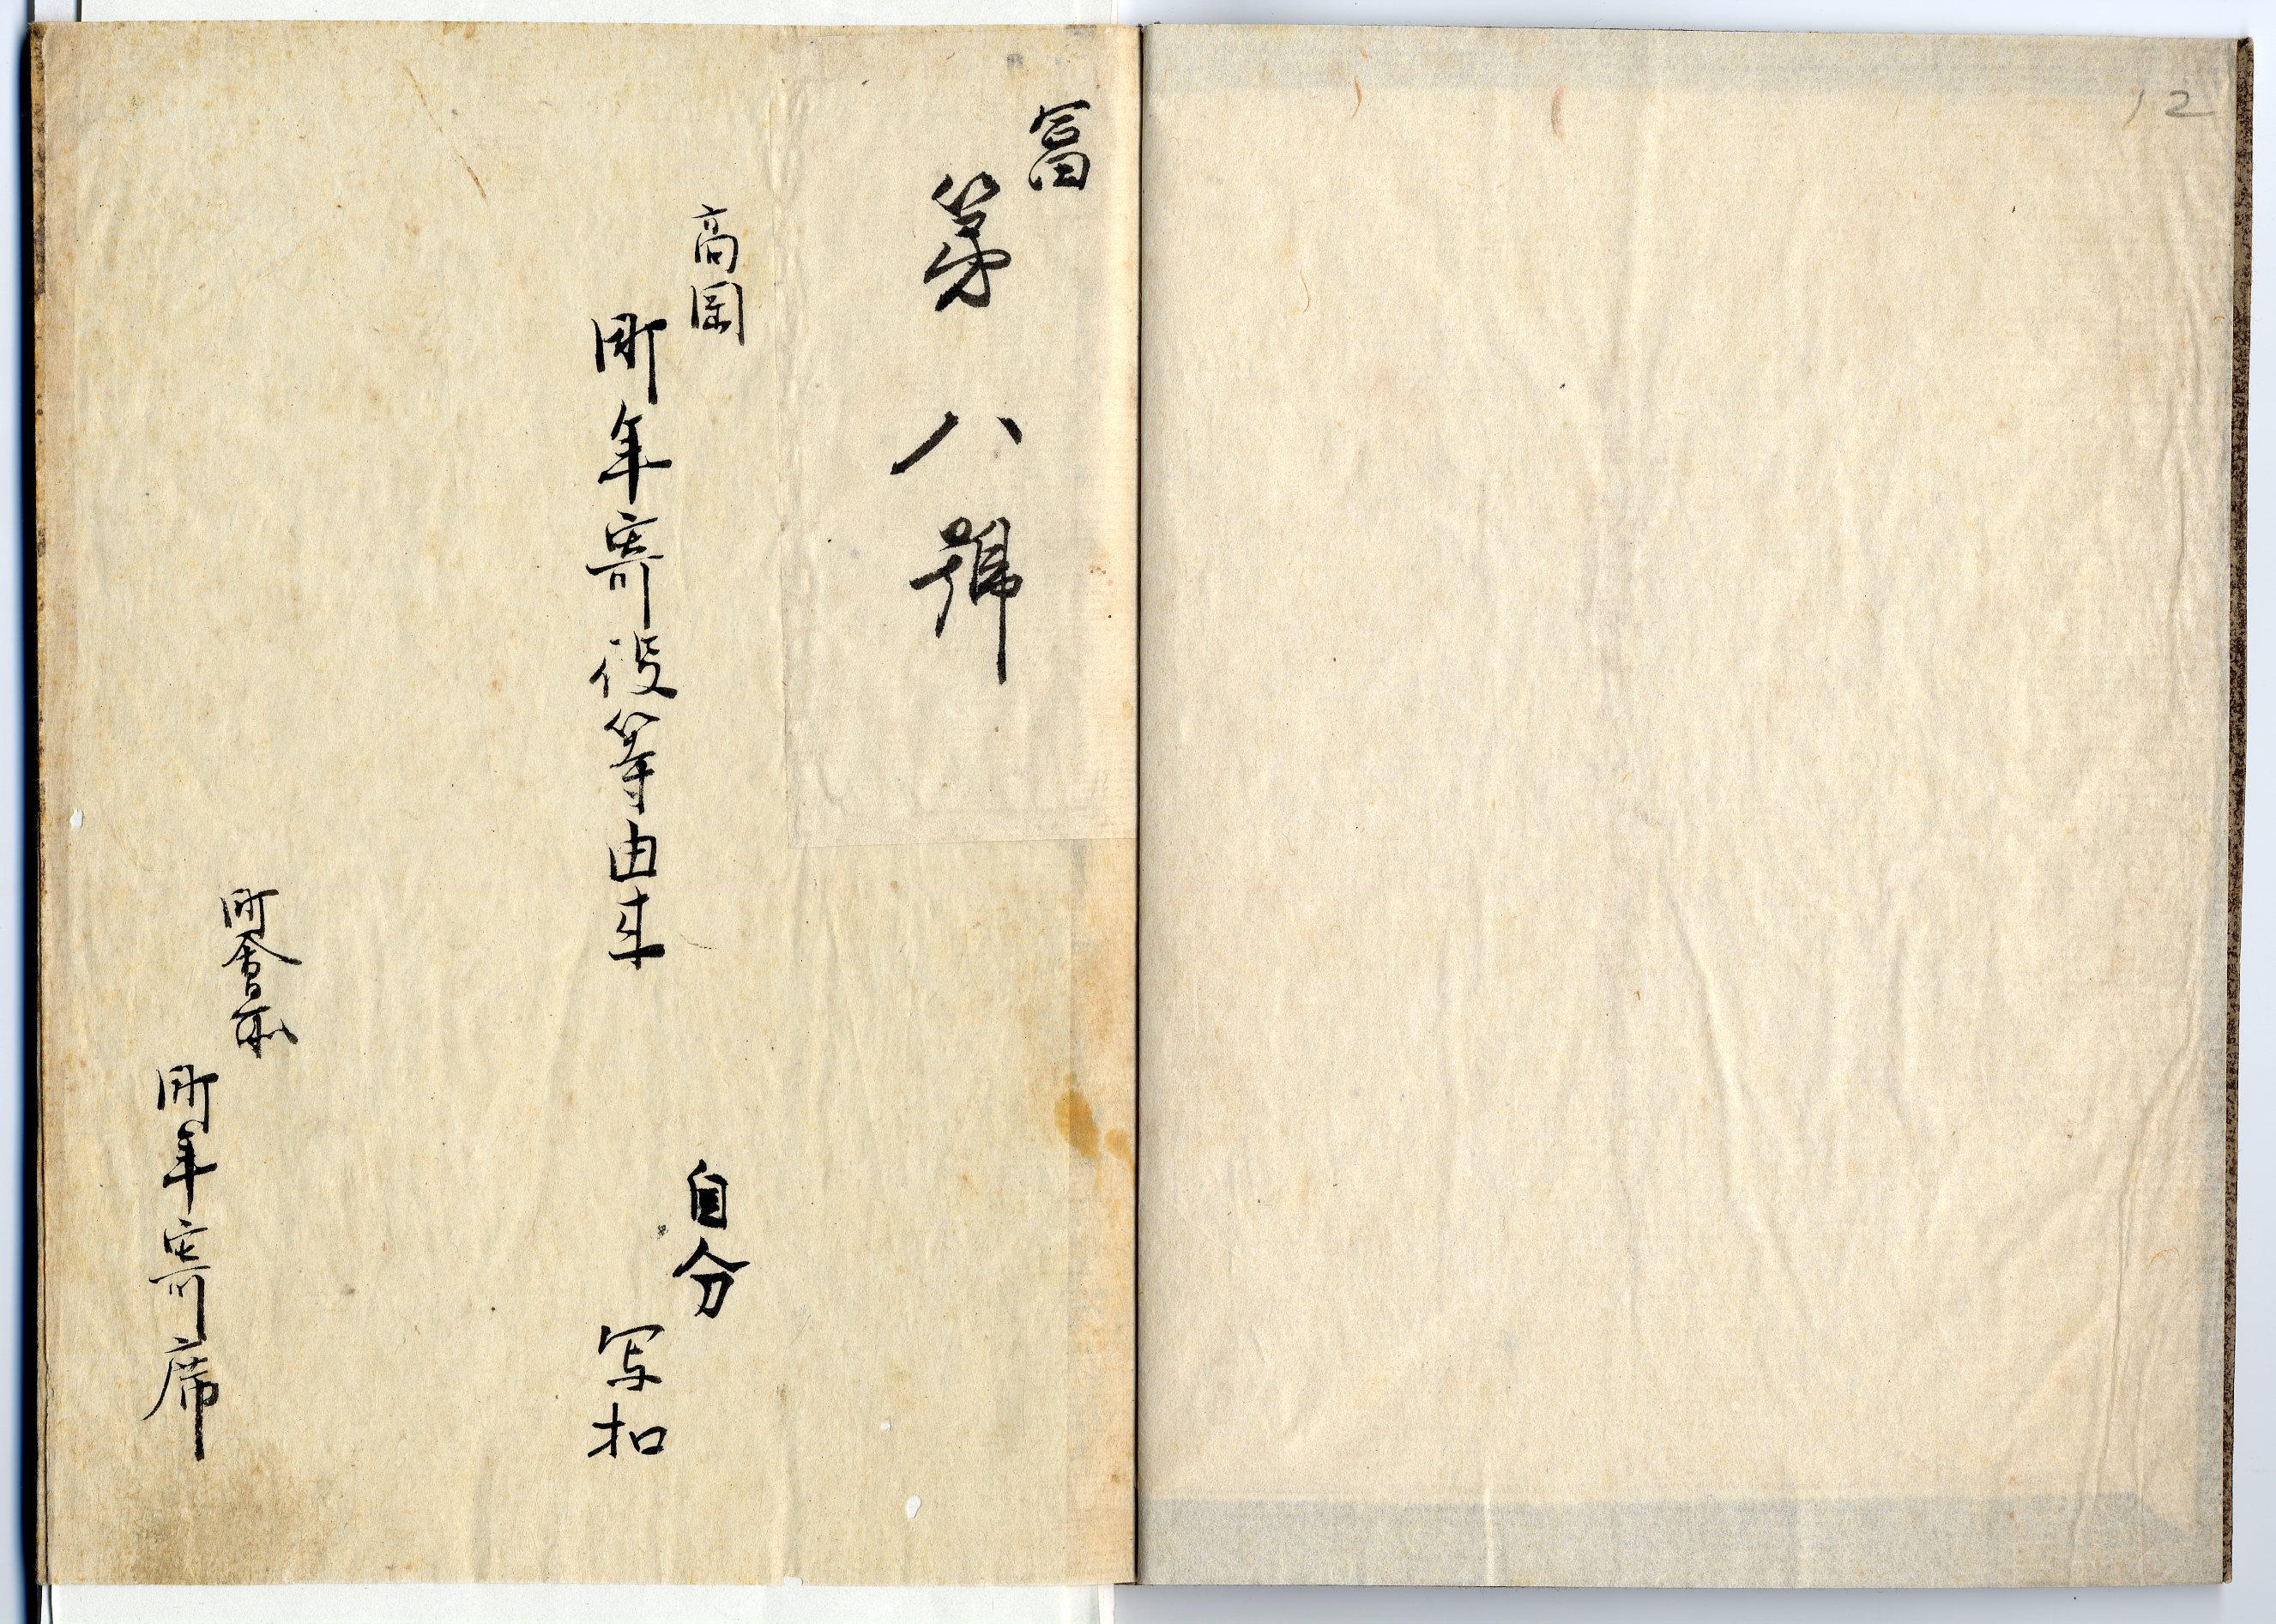 12
冨
第八號
高岡
町年寄役等由来
自分
写扣
町會所
町年寄席